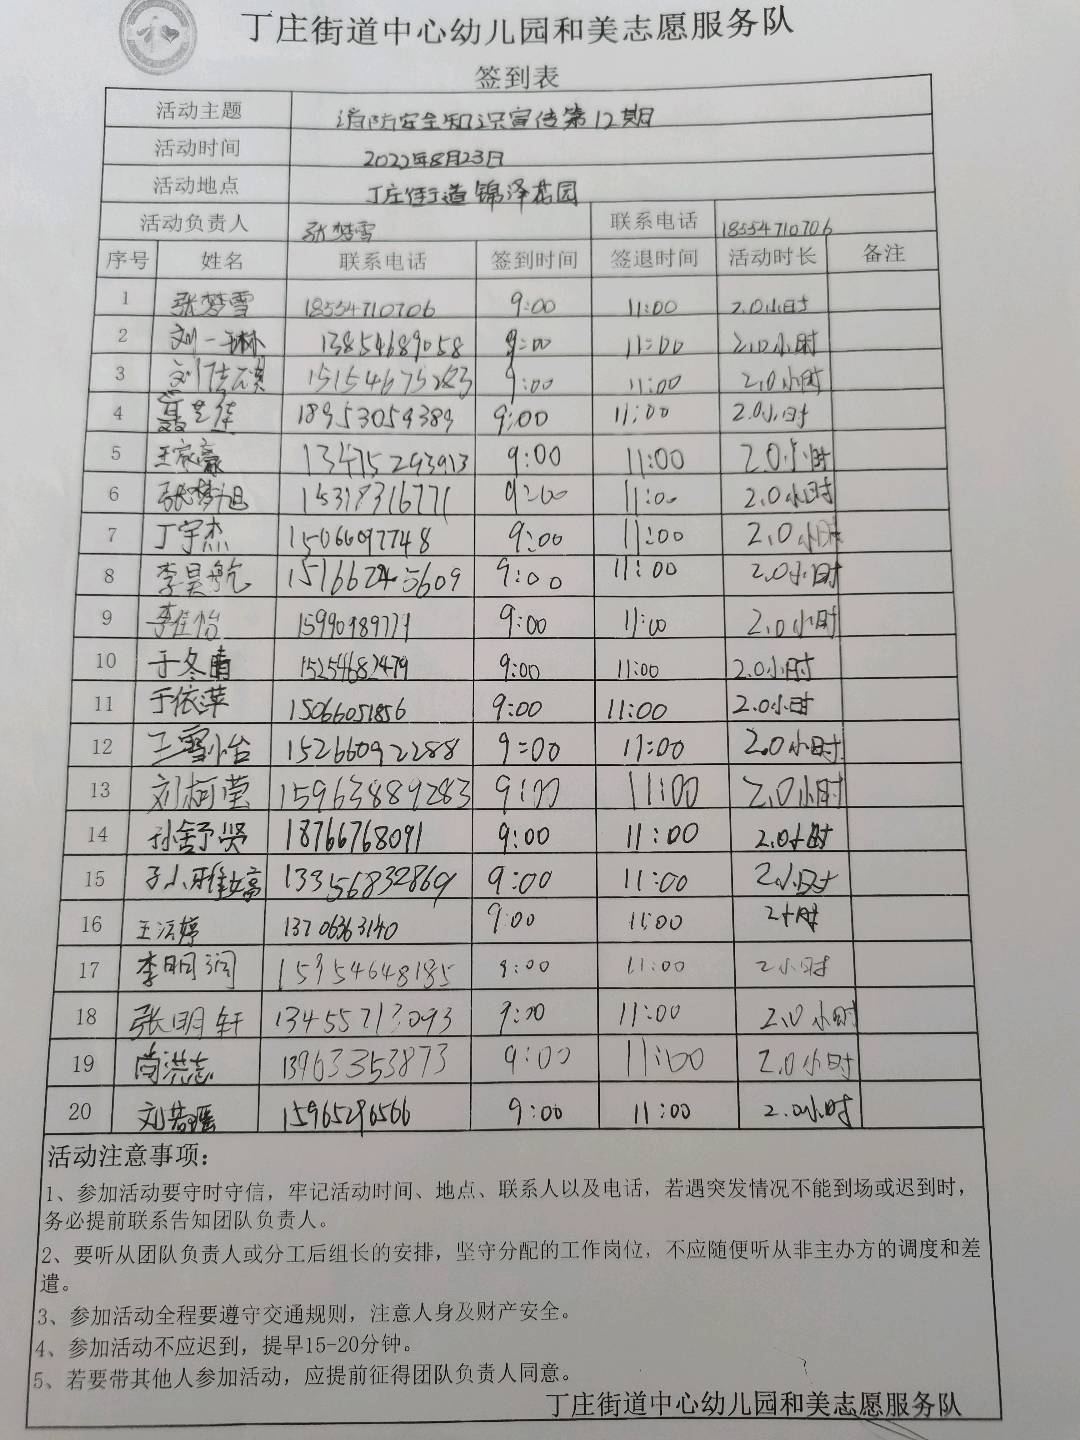 丁庄街道中心幼儿园和美志愿服务队
签到表
活动主题 消防安全知识宣传第12期
活动时间 2022年8月23日
活动地点 丁庄街道锦泽花园
活动负责人 张梦雪 联系电话 18554710706
序号 姓名 联系电话 签到时间 签退时间 活动时长 备注
1 张梦雪 18554710706 9:00 11:00 2.0小时
2 刘一琳 13854689058 9:00 11:00 2.0小时
3 15154675283 9:00 11:00 2.0小时
4 18953059389 9:00 11:00 2.0小时
5 王家豪 13475293913 9:00 11:00 2.0小时
6 张梦旭 15318316771 9:00 11:00 2.0小时
7 丁宇杰 15066097748 9:00 11:00 2.0小时
8 李昊航 15166245609 9:00 11:00 2.0小时
9 李佳怡 15990989777 9:00 11:00 2.0小时
10 于冬晴 15254682479 9:00 11:00 2.0小时
11 于依萍 15066051856 9:00 11:00 2.0小时
12 王雪怡 15266092288 9:00 11:00 2.0小时
13 刘柯莹 15963889283 9:00 11:00 2.0小时
14 孙舒贤 18766768091 9:00 11:00 2.0小时
15 13356832869 9:00 11:00 2小时
16 王洁婷 13706363140 9:00 11:00 2小时
17 李明润 15954648185 9:00 11:00 2小时
18 张明轩 13455713093 9:00 11:00 2.0小时
19 尚洪志 13963353873 9:00 11:00 2.0小时
20 刘若瑶 15965296566 9:00 11:00 2.0小时
活动注意事项：
1、参加活动要守时守信，牢记活动时间、地点、联系人以及电话，若遇突发情况不能到场或迟到时，
务必提前联系告知团队负责人。
2、要听从团队负责人或分工后组长的安排，坚守分配的工作岗位，不应随便听从非主办方的调度和差
遣。
3、参加活动全程要遵守交通规则，注意人身及财产安全。
4、参加活动不应迟到，提早15-20分钟。
5、若要带其他人参加活动，应提前征得团队负责人同意。
丁庄街道中心幼儿园和美志愿服务队